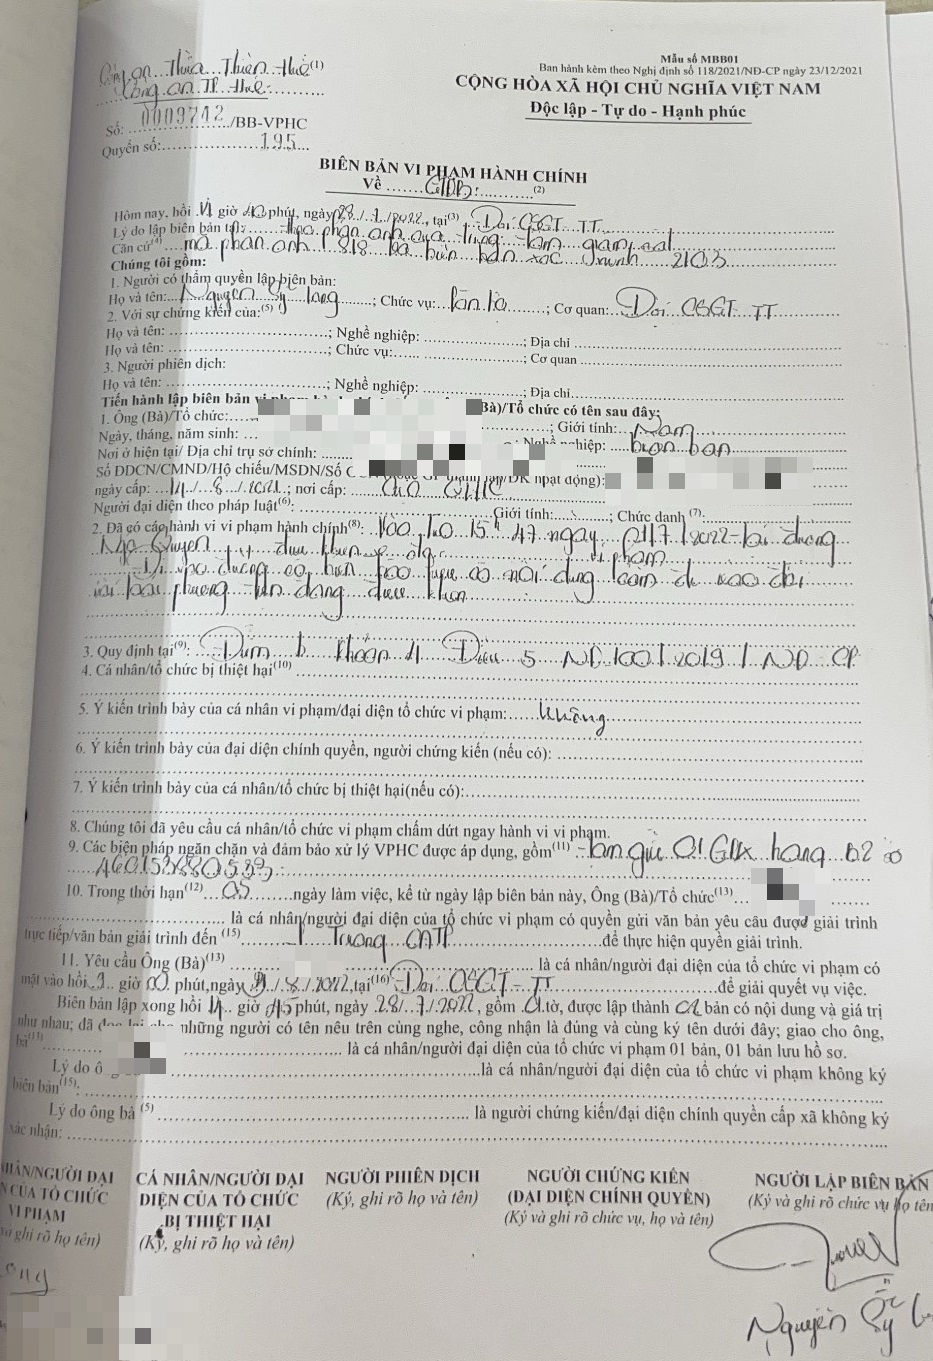 Công an Thừa Thiên Huế(1)
Công an TP Huế
Mẫu số MBB01
Ban hành kèm theo Nghị định số 118/2021/NĐ-CP ngày 23/12/2021
CỘNG HÒA XÃ HỘI CHỦ NGHĨA VIỆT NAM
Độc lập - Tự do - Hạnh phúc
Số: 0009712/BB-VPHC
Quyển số: 195
BIÊN BẢN VI PHẠM HÀNH CHÍNH
Về GTĐB (2)
Hôm nay, hồi giờ phút, ngày 28/7/2022, tại(3) Đội CSGT TT
Lý do lập biên bản tại: theo phản ánh qua trung tâm giám sát
Căn cứ(4) mã phản ánh 1818 và biên bản xác minh 2103
Chúng tôi gồm:
1. Người có thẩm quyền lập biên bản:
Họ và tên: Nguyễn Sỹ; Chức vụ: Cán bộ; Cơ quan: Đội CSGT TT
2. Với sự chứng kiến của:(5)
Họ và tên:; Nghề nghiệp:; Địa chỉ
Họ và tên:; Chức vụ:; Cơ quan
3. Người phiên dịch:
Họ và tên:; Nghề nghiệp:; Địa chỉ
Tiến hành lập biên bản Bà)/Tổ chức có tên sau đây:
1. Ông (Bà)/Tổ chức:; Giới tính: Nam
Ngày, tháng, năm sinh: nghiệp: buôn bán
Nơi ở hiện tại/ Địa chỉ trụ sở chính:
Số ĐDCN/CMND/Hộ chiếu/MSDN/Số hoạt động):
ngày cấp: 14/8/2021; nơi cấp:
Người đại diện theo pháp luật(6): Giới tính:; Chức danh (7):
2. Đã có các hành vi vi phạm hành chính(8): Vào lúc 15h 47 ngày 01/7/2022 tại đường
Ngô Quyền điều khiển vi phạm
Đi vào đường có biển báo hiệu có nội dung cấm đi vào đối
với loại phương tiện đang điều khiển
3. Quy định tại(9): Điểm b khoản 4 Điều 5 NĐ 100/2019/NĐ CP
4. Cá nhân/tổ chức bị thiệt hại(10)
5. Ý kiến trình bày của cá nhân vi phạm/đại diện tổ chức vi phạm: không
6. Ý kiến trình bày của đại diện chính quyền, người chứng kiến (nếu có):
7. Ý kiến trình bày của cá nhân/tổ chức bị thiệt hại(nếu có):
8. Chúng tôi đã yêu cầu cá nhân/tổ chức vi phạm chấm dứt ngay hành vi vi phạm.
9. Các biện pháp ngăn chặn và đảm bảo xử lý VPHC được áp dụng, gồm(11) tạm giữ 01 GPLX hạng B2 số
10. Trong thời hạn(12) 05 ngày làm việc, kể từ ngày lập biên bản này, Ông (Bà)/Tổ chức(13)
là cá nhân/người đại diện của tổ chức vi phạm có quyền gửi văn bản yêu cầu được giải trình
trực tiếp/văn bản giải trình đến (15) Trưởng CATP để thực hiện quyền giải trình.
11. Yêu cầu Ông (Bà)(13) là cá nhân/người đại diện của tổ chức vi phạm có
mặt vào hồi 9 giờ 00 phút, ngày /8/2022, tại(16) Đội CSGT TT để giải quyết vụ việc.
Biên bản lập xong hồi giờ 45 phút, ngày 28/7/2022, gồm 01 tờ, được lập thành 02 bản có nội dung và giá trị
như nhau; đã những người có tên nêu trên cùng nghe, công nhận là đúng và cùng ký tên dưới đây; giao cho ông,
bà(13) là cá nhân/người đại diện của tổ chức vi phạm 01 bản, 01 bản lưu hồ sơ.
Lý do là cá nhân/người đại diện của tổ chức vi phạm không ký
biên bản(15):
Lý do ông bà (5) là người chứng kiến/đại diện chính quyền cấp xã không ký
xác nhận:
NHÂN/NGƯỜI ĐẠI CÁ NHÂN/NGƯỜI ĐẠI NGƯỜI PHIÊN DỊCH NGƯỜI CHỨNG KIẾN NGƯỜI LẬP BIÊN BẢN
CỦA TỔ CHỨC DIỆN CỦA TỔ CHỨC (Ký, ghi rõ họ và tên) (ĐẠI DIỆN CHÍNH QUYỀN) (Ký và ghi rõ chức vụ, họ tên
VI PHẠM BỊ THIỆT HẠI (Ký và ghi rõ chức vụ, họ và tên)
ghi rõ họ tên) (Ký, ghi rõ họ và tên)
Nguyễn Sỹ